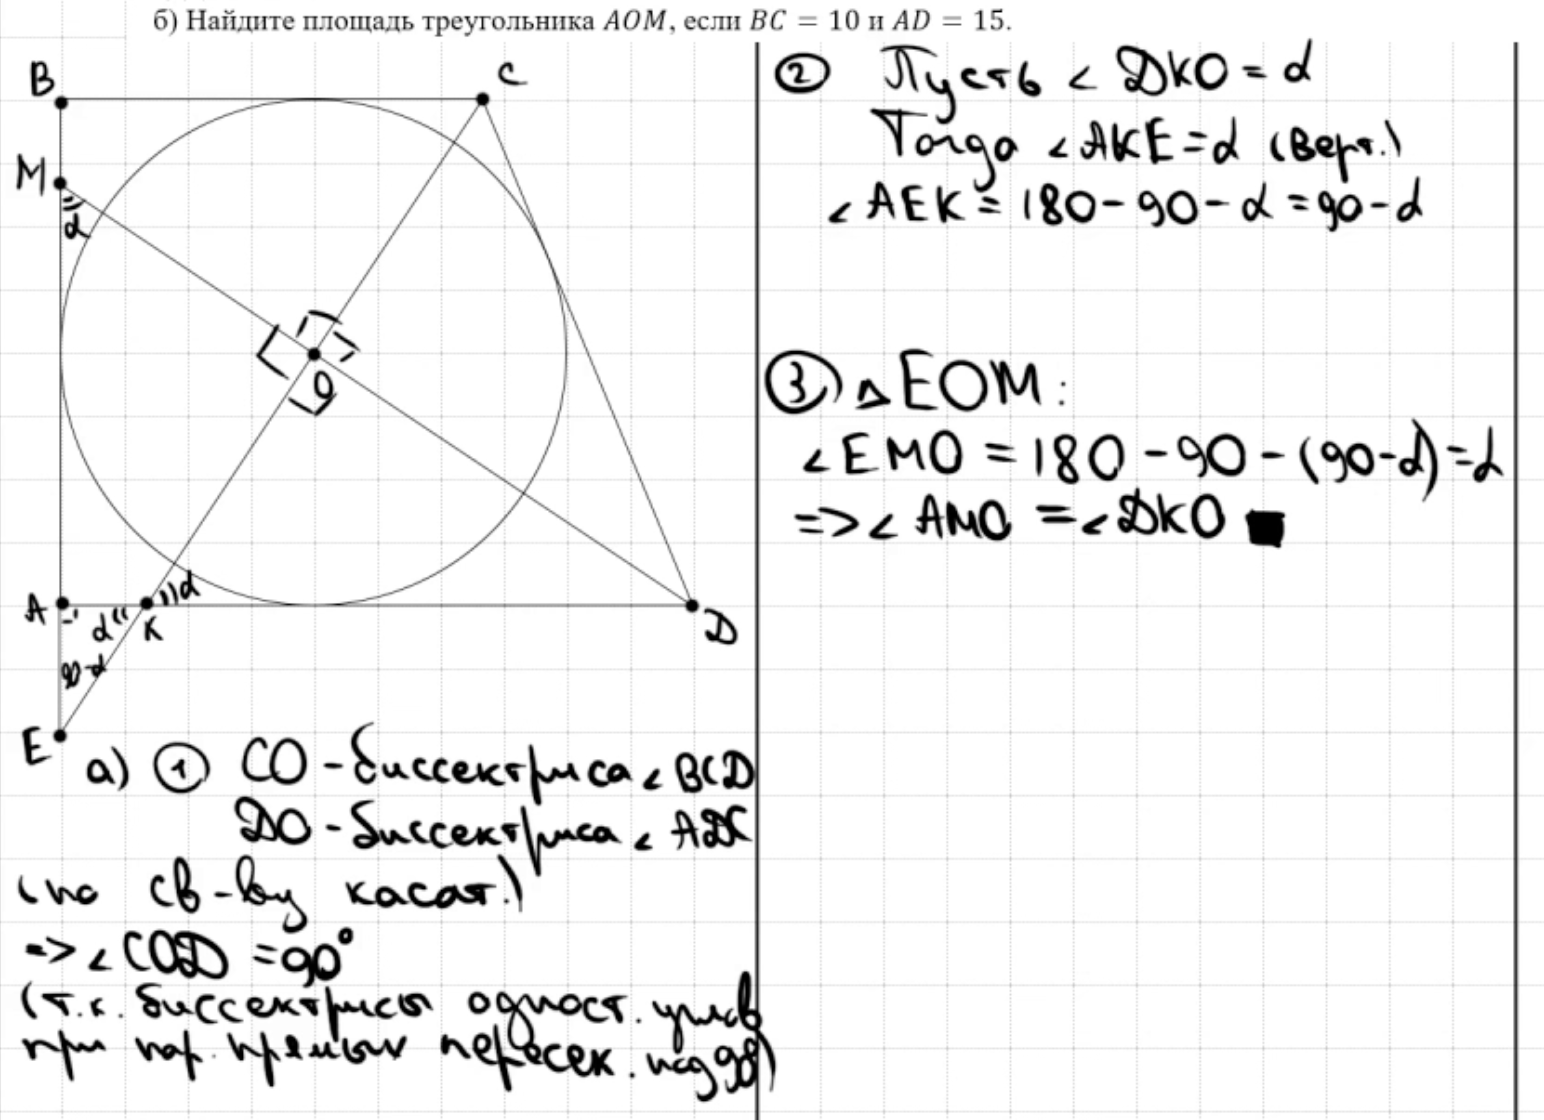 б) Найдите площадь треугольника AOM, если BC = 10 и AD = 15.
B
C
M
α
O
A
α
K
α
D
90-α
E
а) ① CO - биссектриса ∠ BCD
DO - биссектриса ∠ ADC
(по св-ву касат.)
=> ∠ COD = 90°
(т.к. биссектрисы одност. углов
при пар. прямых пересек. под 90)
② Пусть ∠ DKO = α
Тогда ∠ AKE = α (Верт.)
∠ AEK = 180 - 90 - α = 90 - α
③ △ EOM:
∠ EMO = 180 - 90 - (90 - α) = α
=> ∠ AMO = ∠ DKO ■